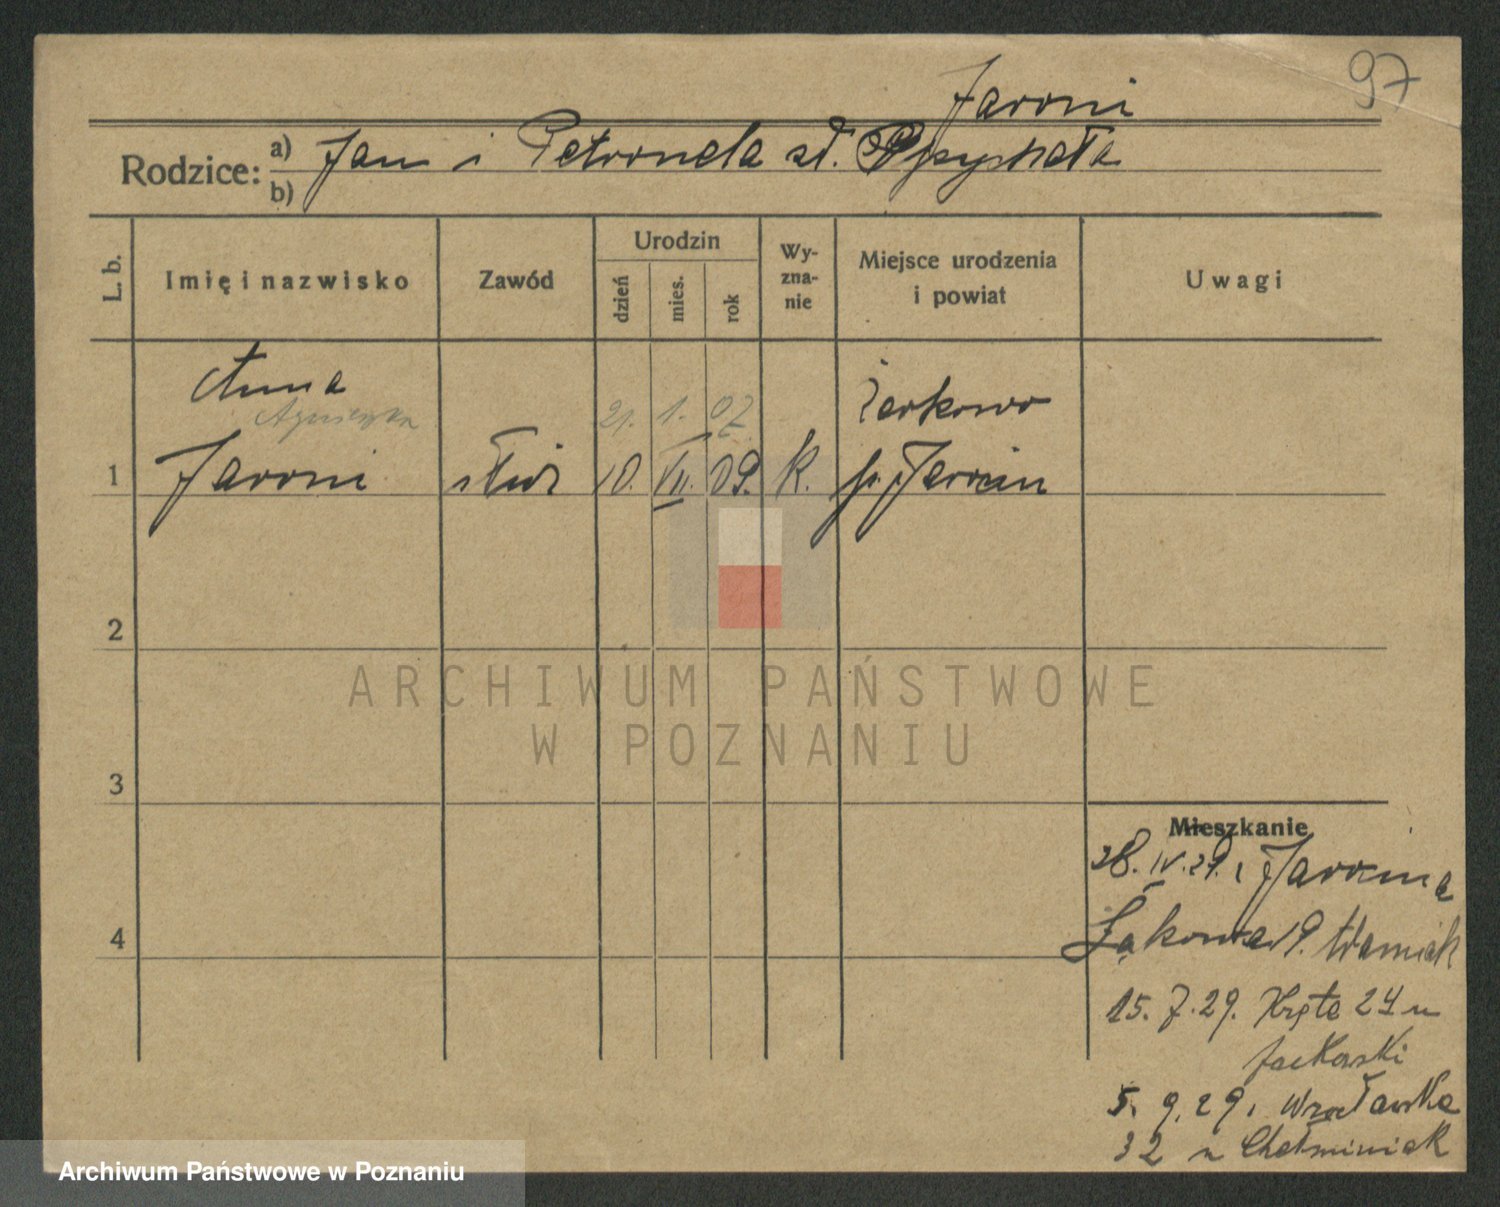 97
Jaroni
Rodzice: a) b) Jan i Petronela zd. Przychała
L. b. Imię i nazwisko Zawód Urodzin dzień mies. rok Wyznanie Miejsce urodzenia i powiat Uwagi
Anna Żerkowo
Agnieszka 21. 1. 07.
1 Jaroni służ 10. VII. 09. K. p. Jarocin
2
3
4
Mieszkanie
28. IV. 29. z Jarocina
Łąkowa 19.
15. 7. 29. Kręta 24 u
Jackowski
5. 9. 29. Wrocławska
32 u Chełminiak
ARCHIWUM PAŃSTWOWE
W POZNANIU
Archiwum Państwowe w Poznaniu